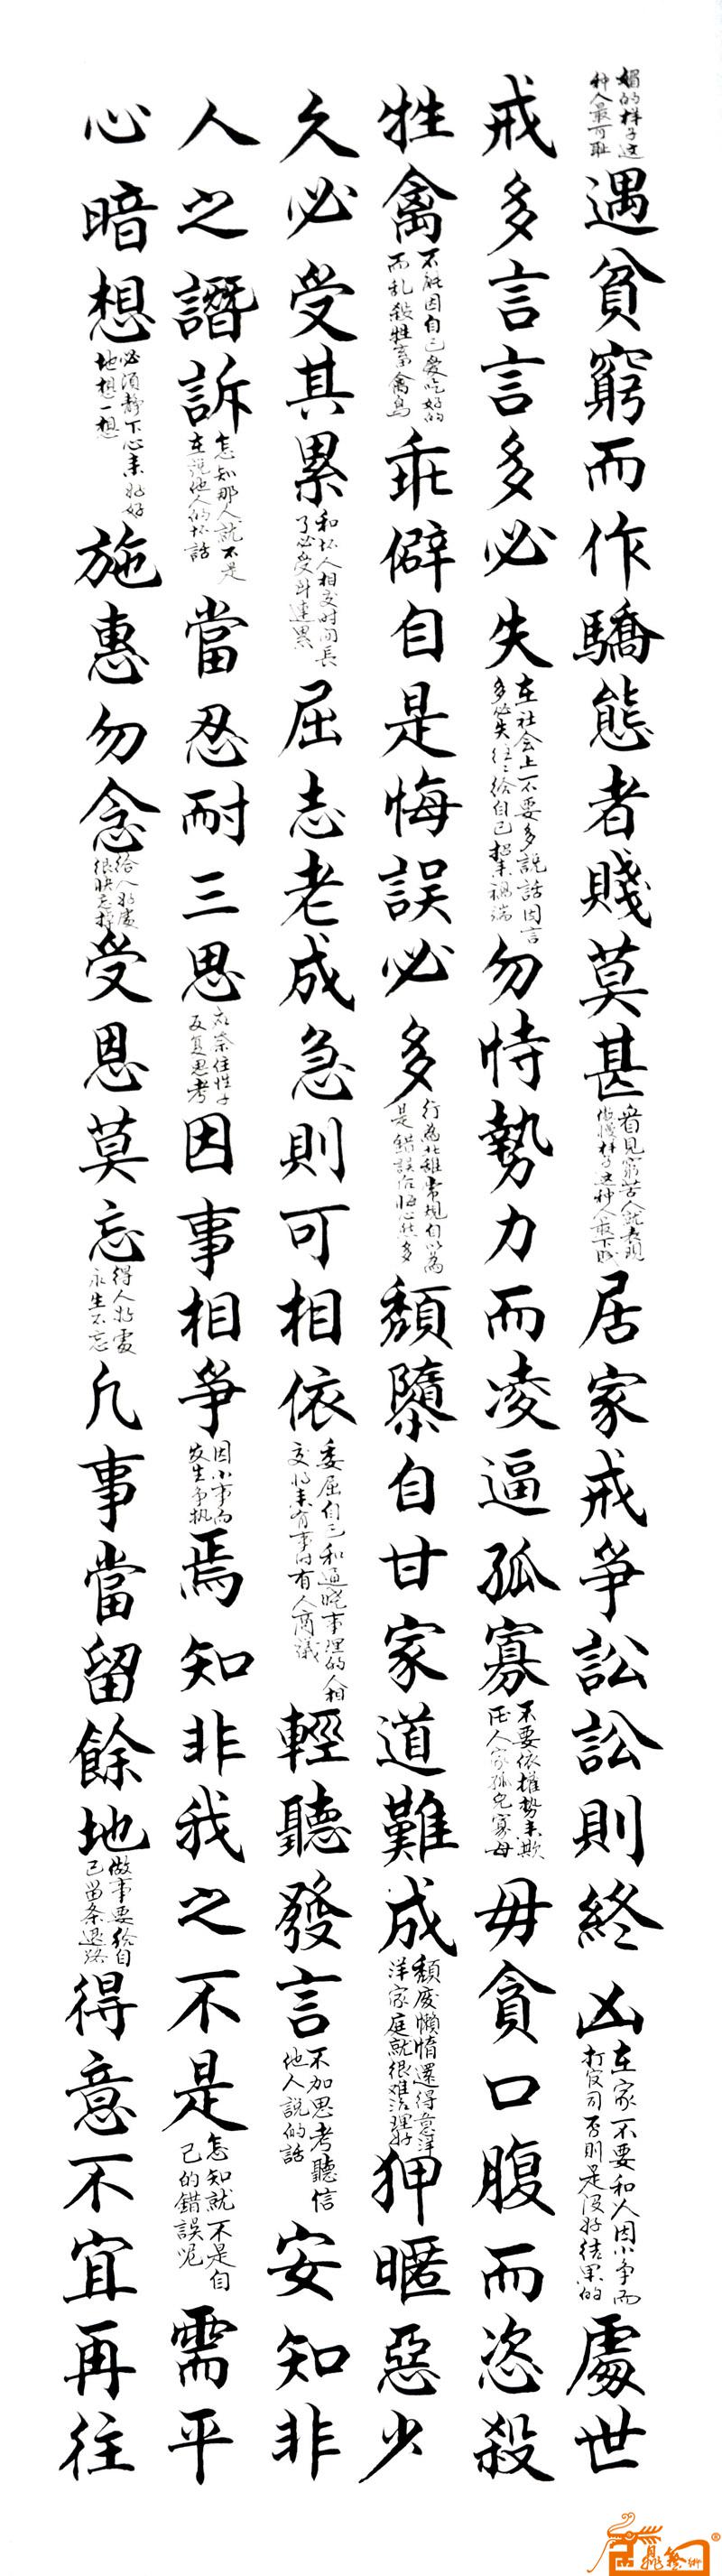 媚的样子这种人最可耻遇貧窮而作驕態者賤莫甚看見窮苦人就表現傲慢样子这种人最下贱居家戒爭訟訟則終凶在家不要和人因小爭而打官司否則是没好结果的處世
戒多言言多必失在社会上不要多説話因言多必失往往给自己招来禍端勿恃勢力而凌逼孤寡不要依權势来欺压人家孤儿寡母毋貪口腹而恣殺
牲禽不能因自己爱吃好的而乱殺牲畜禽鸟乖僻自是悔誤必多行為乖離常規自以為是錯誤後悔必然多頹隳自甘家道難成頹废懒惰還得意洋洋家庭就很难治理好狎暱惡少
久必受其累和坏人相交时间長了必受到連累屈志老成急則可相依委屈自己和通晓事理的人相交将来有事时有人商議輕聽發言不加思考聽信他人説的話安知非
人之譖訴怎知那人就不是在説他人的坏話當忍耐三思应奈住性子反复思考因事相爭因小事而发生争执焉知非我之不是怎知就不是自己的錯誤呢需平
心暗想必须静下心来好好地想一想施惠勿念给人好處很快忘掉受恩莫忘得人好處永生不忘凡事當留餘地做事要给自己留条退路得意不宜再往